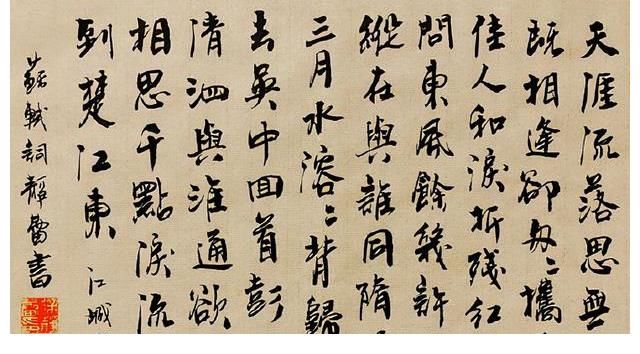 天涯流落思無
既相逢卻匆〻攜
佳人和淚折殘紅
問東風餘幾許
縱在與誰同隋
三月水溶〻背歸
去吳中回首彭
清泗與淮通欲
相思千點淚流
到楚江東 江城
蘇軾詞 書